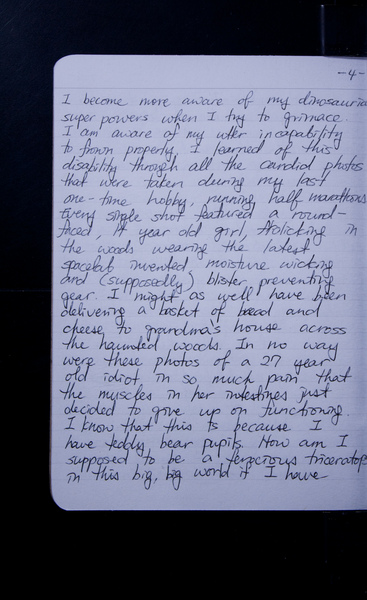 -4-
I become more aware of my dinosauria
super powers when I try to grimace.
I am aware of my utter incapability
to frown properly. I learned of this
disability through all the candid photos
that were taken during my last
one-time hobby, running half marathons.
Every single shot featured a round-
faced, 14 year old girl, frolicking in
the woods wearing the latest
spacelab invented, moisture wicking
and (supposedly) blister preventing
gear. I might as well have been
delivering a basket of bread and
cheese to grandma's house across
the haunted woods. In no way
were these photos of a 27 year
old idiot in so much pain that
the muscles in her intestines just
decided to give up on functioning.
I know that this is because I
have teddy bear pupils. How am I
supposed to be a ferocious triceratops
in this big, big world if I have